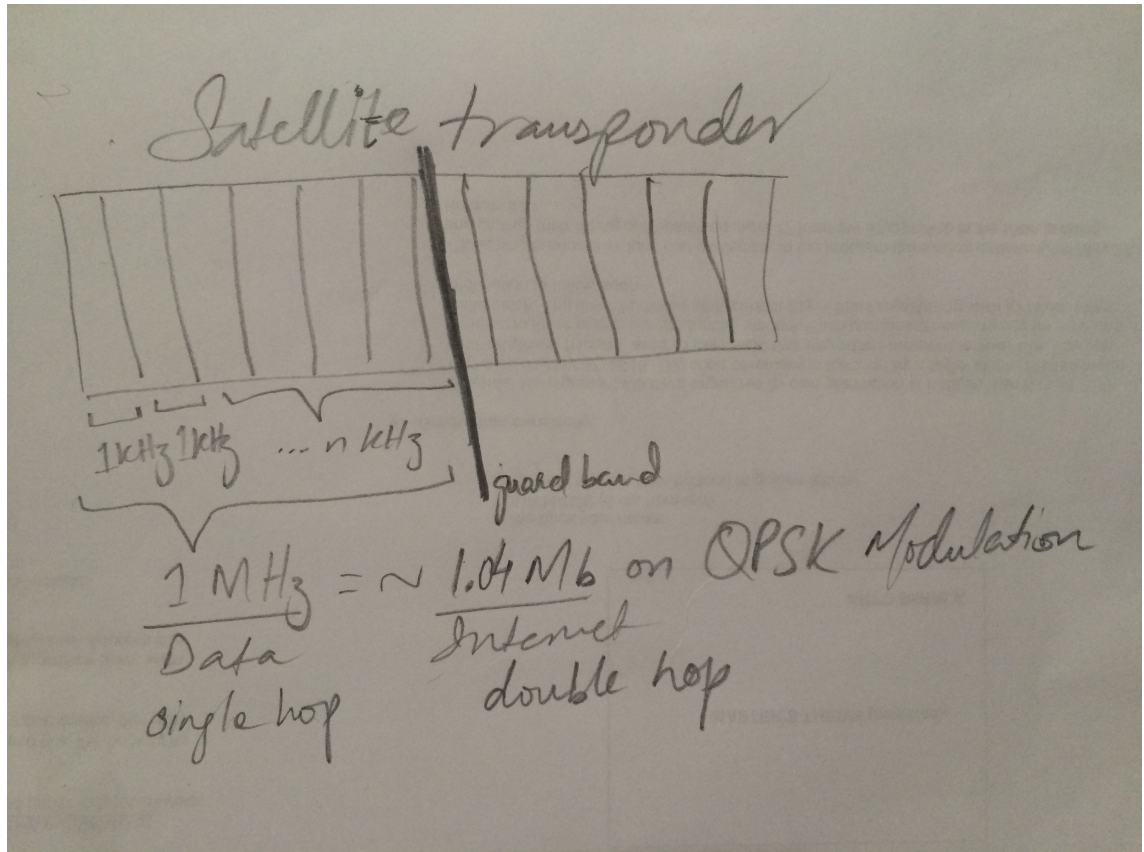 Satellite transponder
1kHz 1kHz ... n kHz
guard band
1 MHz = ~ 1.04 Mb on QPSK Modulation
Data Internet
single hop double hop